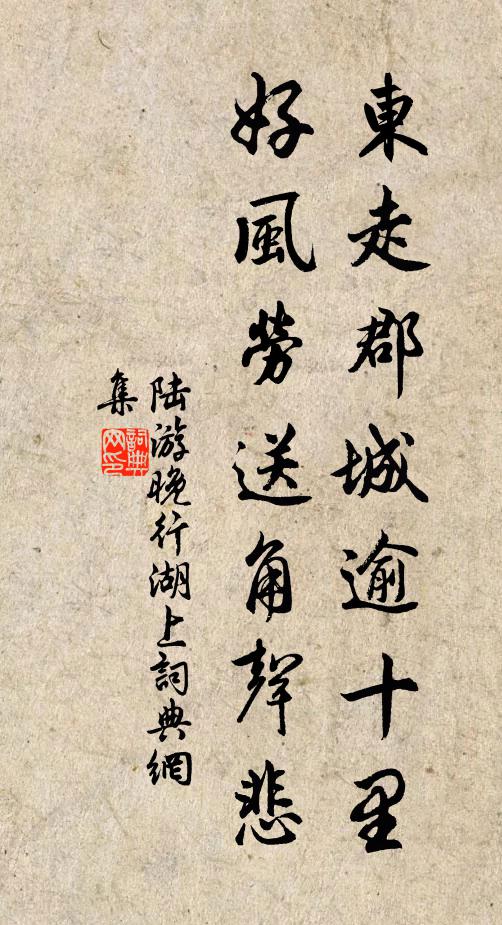 東走郡城逾十里
好風勞送角聲悲
陸游晚行湖上詞典網
集
詞典
网印